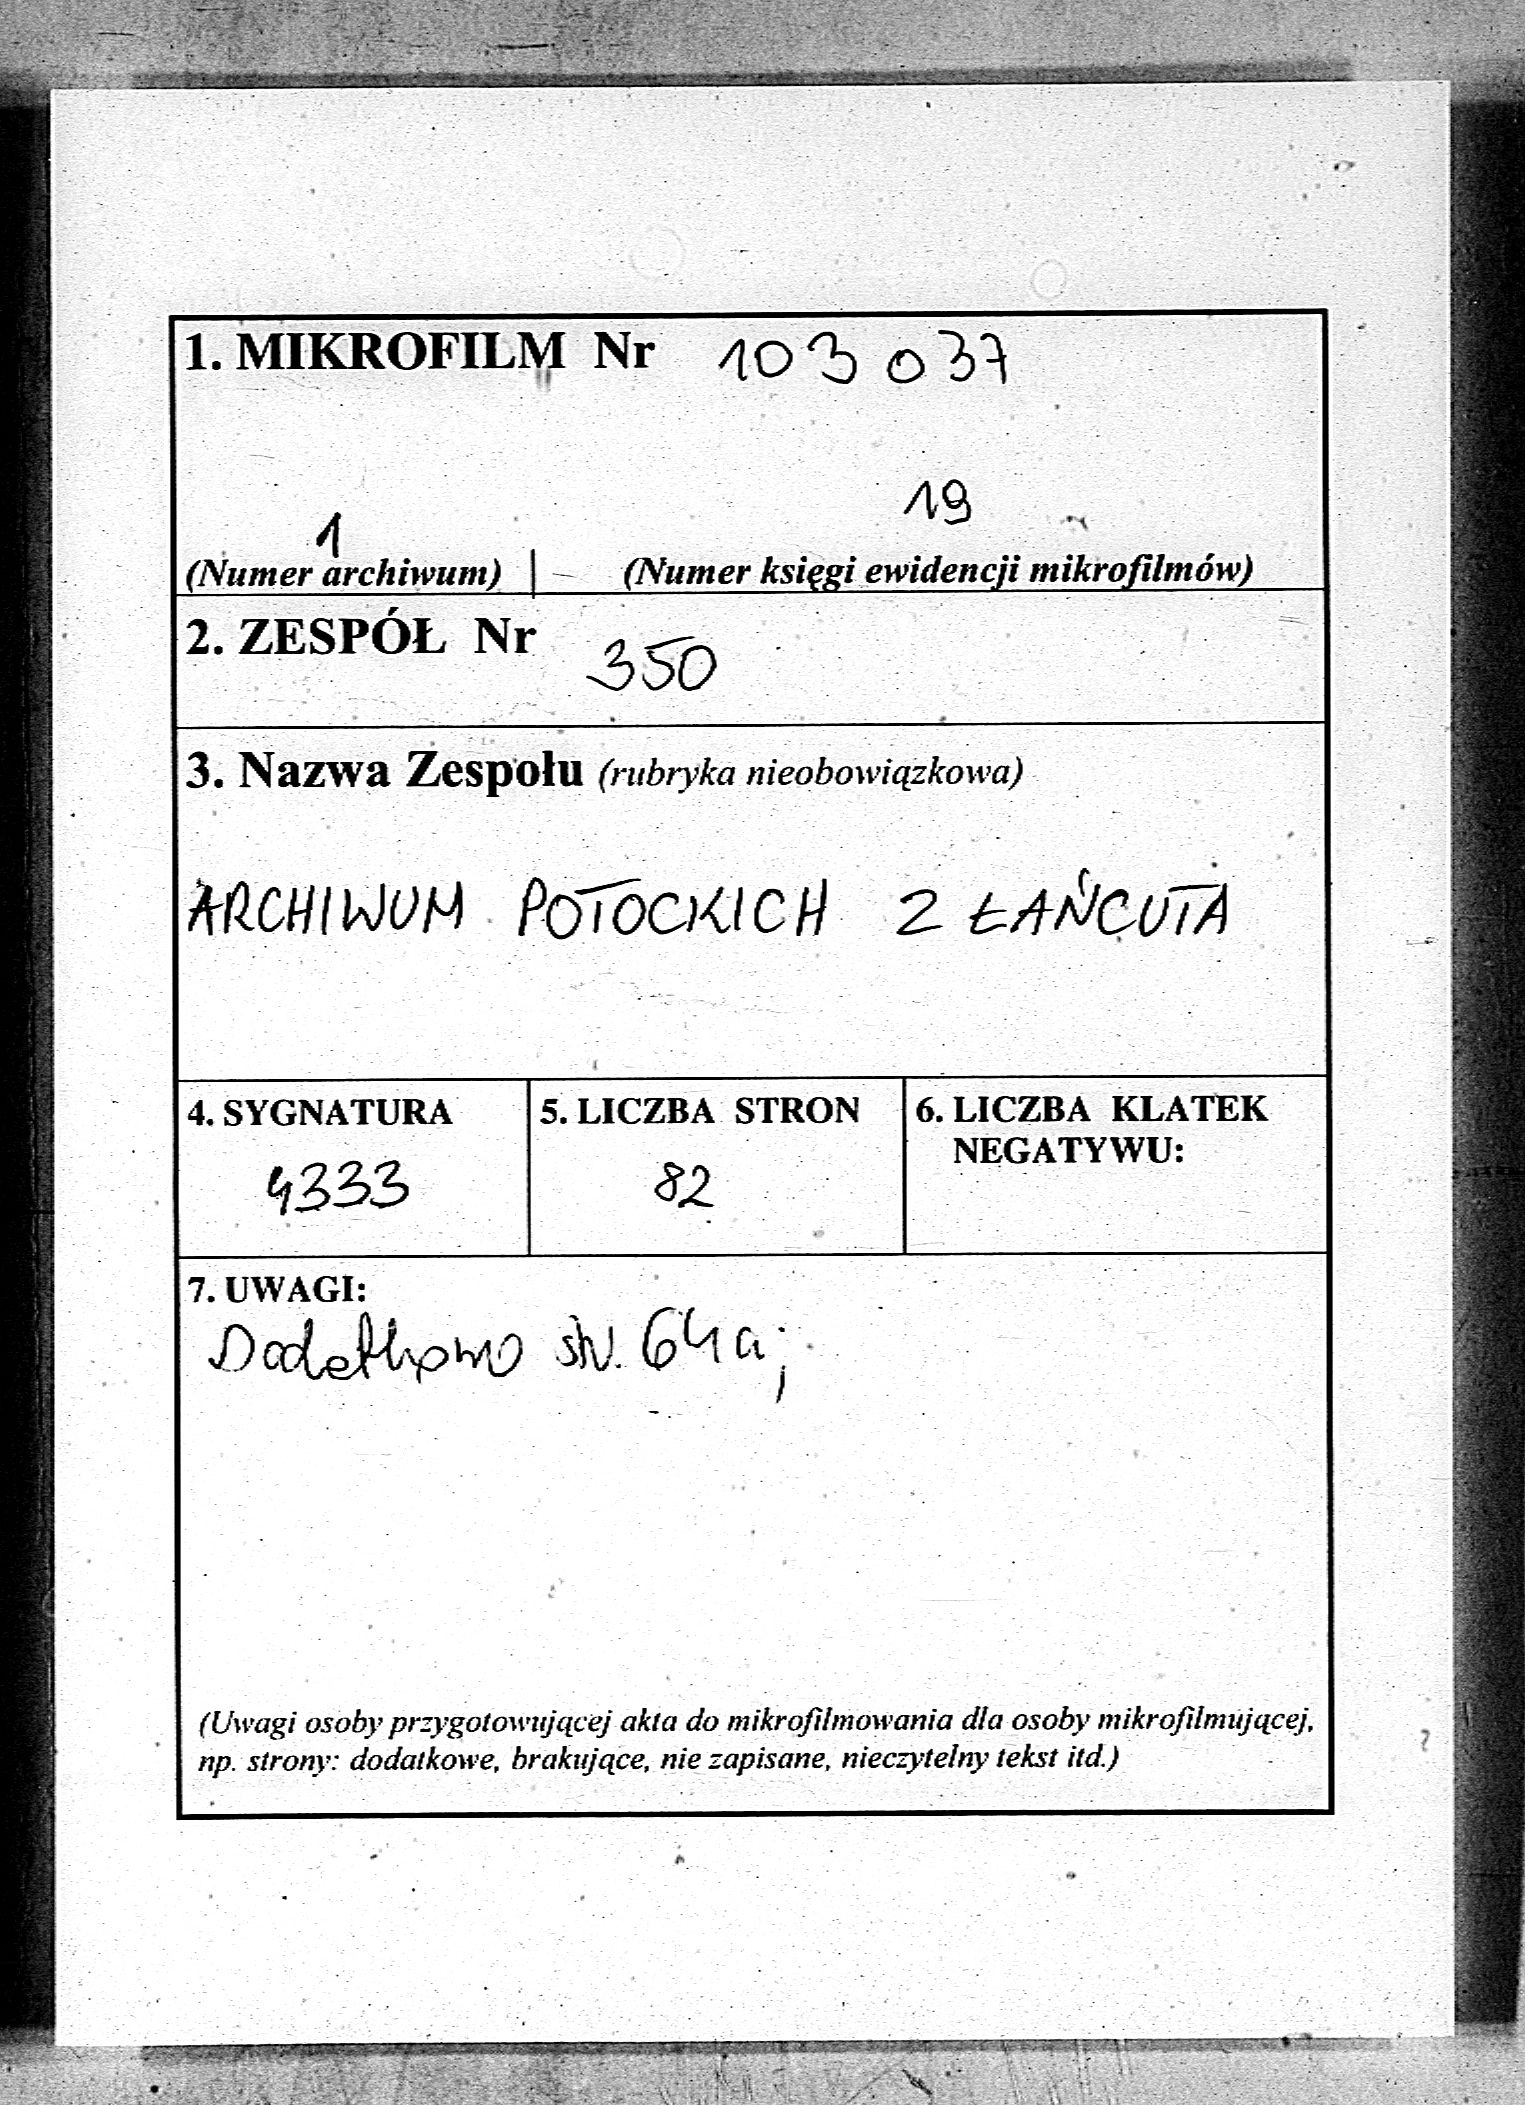 1. MIKROFILM Nr 103 037
1 19
(Numer archiwum) | (Numer księgi ewidencji mikrofilmów)
2. ZESPÓŁ Nr 350
3. Nazwa Zespołu (rubryka nieobowiązkowa)
ARCHIWUM POTOCKICH Z ŁAŃCUTA
4. SYGNATURA
4333
5. LICZBA STRON
82
6. LICZBA KLATEK
NEGATYWU:
7. UWAGI:
Dodatkowo str. 64a;
(Uwagi osoby przygotowującej akta do mikrofilmowania dla osoby mikrofilmującej,
np. strony: dodatkowe, brakujące, nie zapisane, nieczytelny tekst itd.)